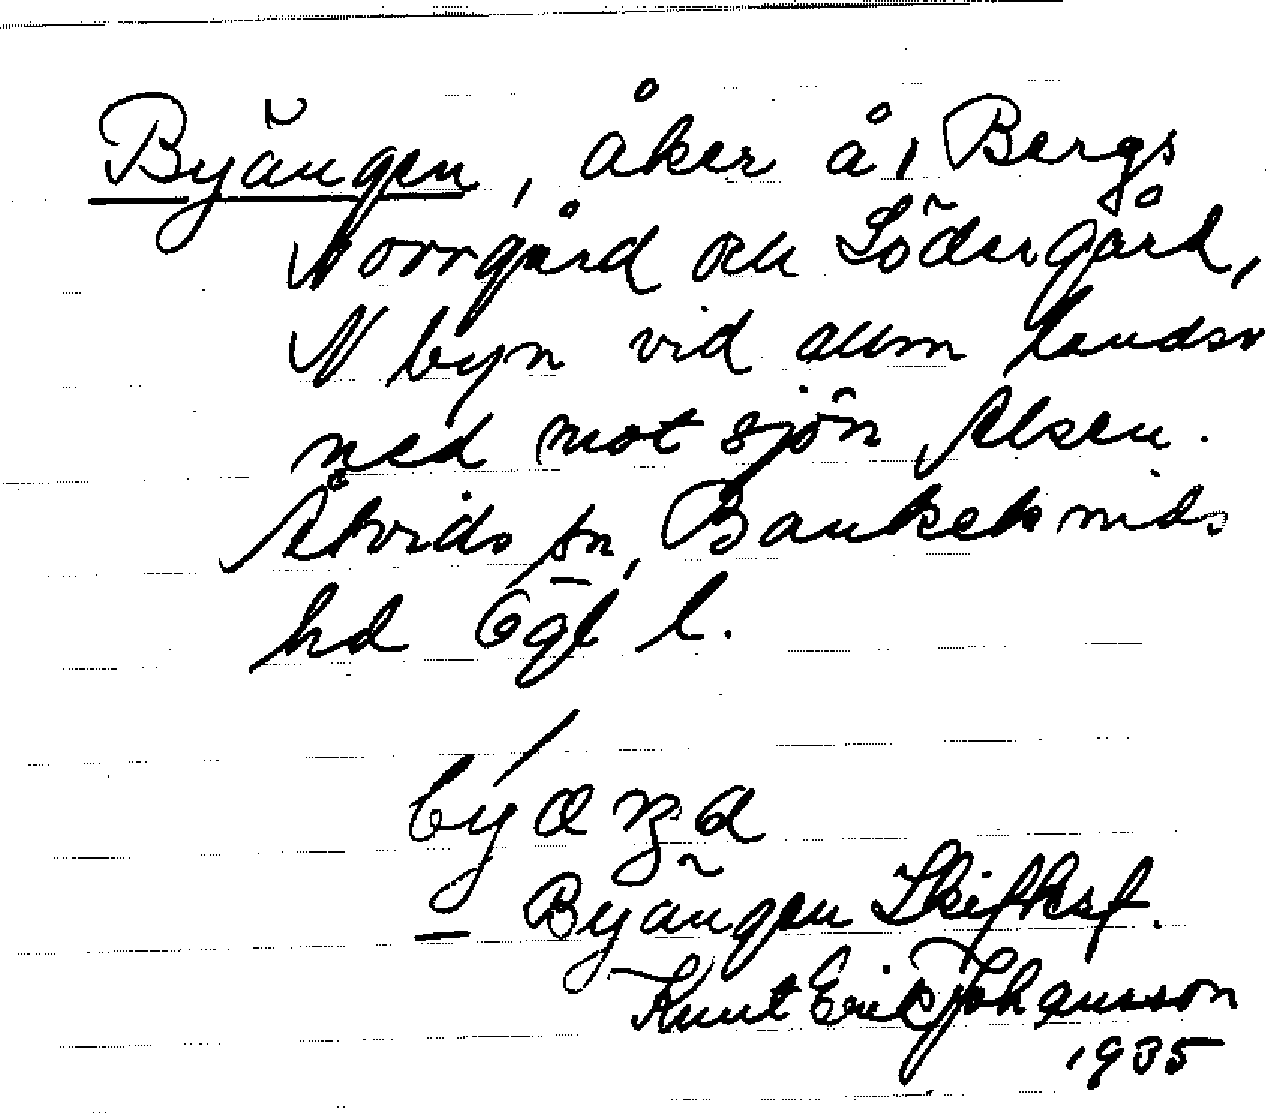 Byängen, åker å 1 Bergs
Norrgård och Södergård,
N byn vid allm landsv
ned mot sjön Ålsen.
Åtvids sn, Bankekinds
hd Ögl l.
byæŋa
= Byängen Skifksf.
Knut Erik Johansson
1935